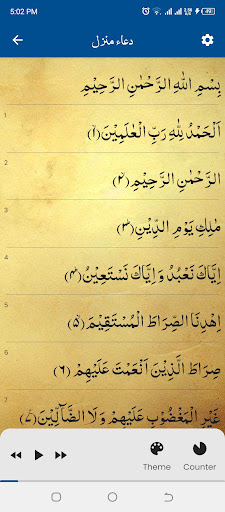 5:02 PM
دعاء منزل
بِسْمِ اللهِ الرَّحْمٰنِ الرَّحِيْمِ
1
اَلْحَمْدُ لِلّٰهِ رَبِّ الْعٰلَمِيْنَ ﴿١﴾
2
الرَّحْمٰنِ الرَّحِيْمِ ﴿٢﴾
3
مٰلِكِ يَوْمِ الدِّيْنِ ﴿٣﴾
4
اِيَّاكَ نَعْبُدُ وَاِيَّاكَ نَسْتَعِيْنُ ﴿٤﴾
5
اِهْدِنَا الصِّرَاطَ الْمُسْتَقِيْمَ ﴿٥﴾
6
صِرَاطَ الَّذِيْنَ اَنْعَمْتَ عَلَيْهِمْ ﴿٦﴾
7
غَيْرِ الْمَغْضُوْبِ عَلَيْهِمْ وَلَا الضَّآلِّيْنَ ﴿٧﴾
Theme
Counter